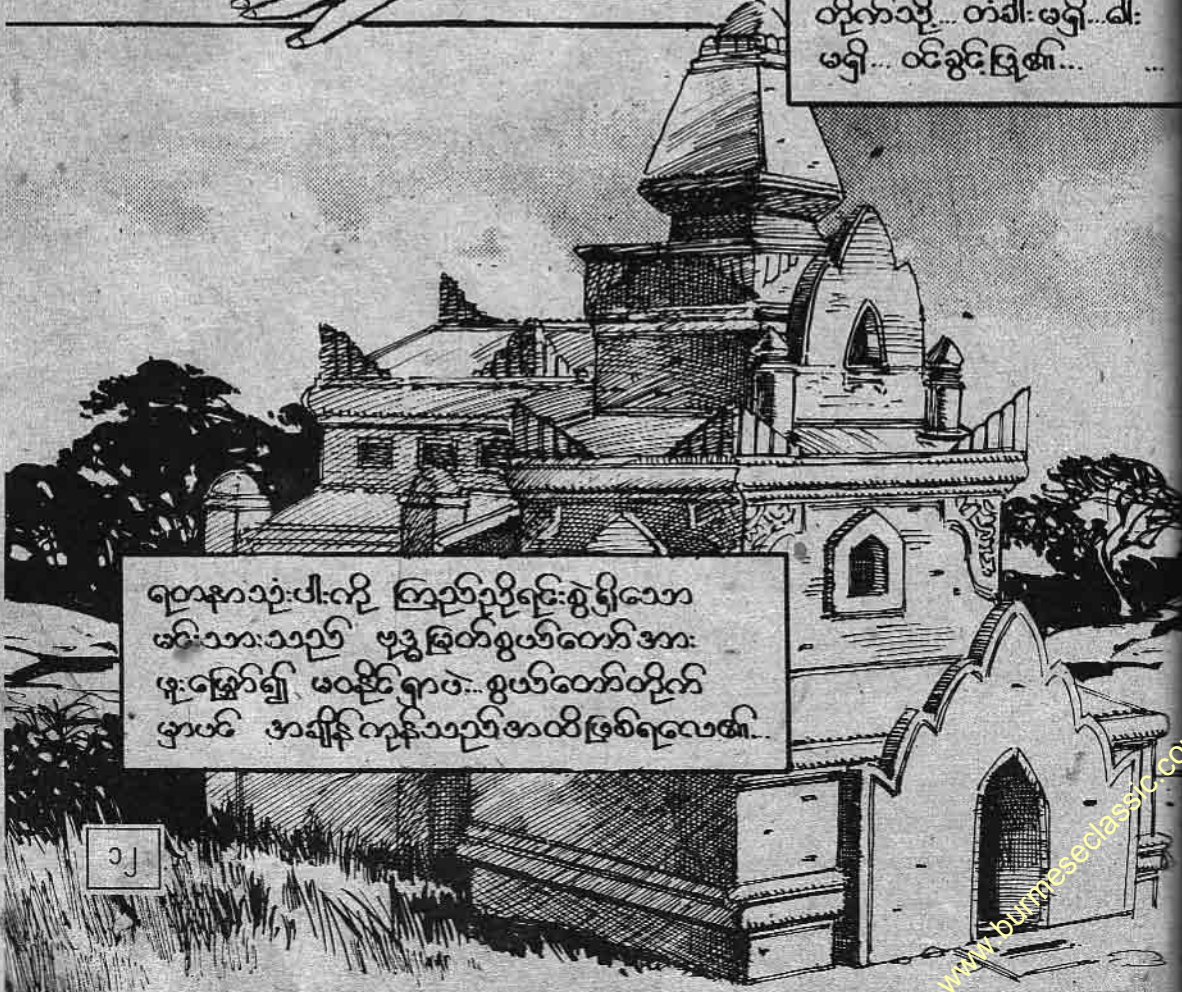 တိုက်သို့... တံခါးမရှိ...ဓါး
မရှိ... ဝင်ခွင့်ပြု၏... ...
ရတနာသုံးပါးကို ကြည်ညိုရင်းစွဲရှိသော
မင်းသားသည် ဗုဒ္ဓမြတ်စွယ်တော်အား
ဖူးမြှော်၍ မဝနိုင်ရှာပဲ...စွယ်တော်တိုက်
မှာပင် အချိန်ကုန်သည်အထိဖြစ်ရလေ၏...
၁၂
www.burmeseclassic.com